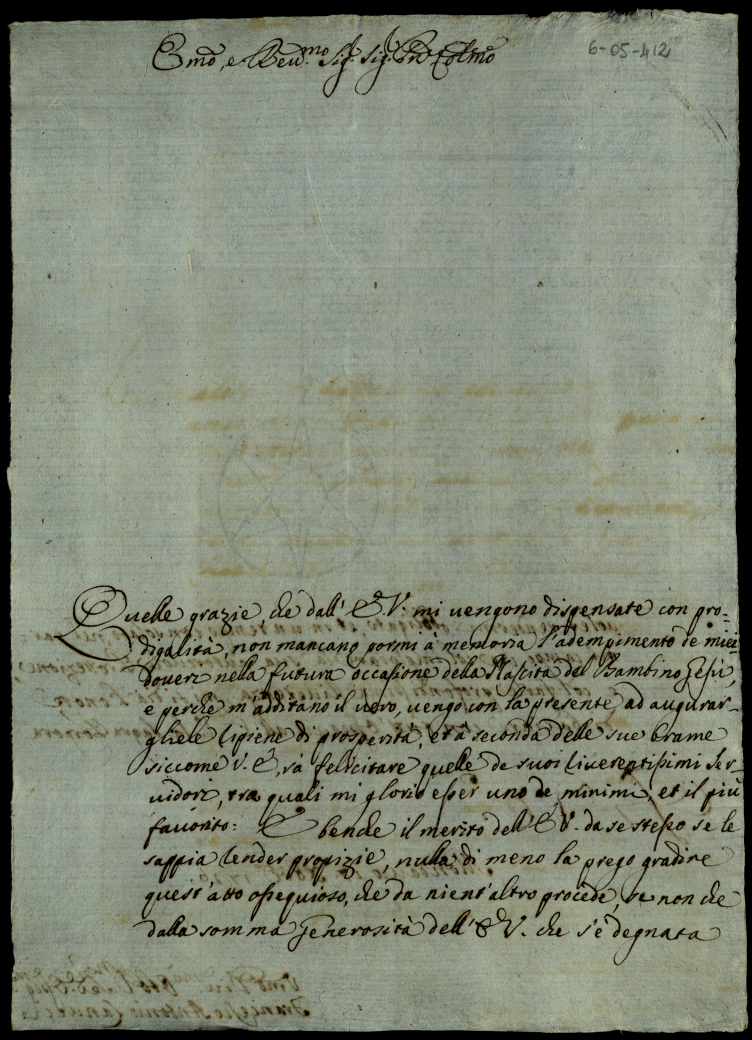 Emõ, e Reu.mo Sig.r Sig.r Prõn Colmõ
6-05-412
Quelle grazie, che dall' E.V. mi uengono dispensate con pro-
digalità, non mancano pormi à memoria l'adempimento de miei
doueri nella futura occasione della Nascita del Bambino Gesù,
e perche m'additano il uero, uengo con la presente ad augurar-
gliele ripiene di prosperità, et a seconda delle sue brame
siccome V.E. sà felicitare quelle de suoi riuerentissimi ser-
uidori, tra quali mi glorio esser uno de minimi, et il più
fauorito: E benche il merito dell' E.V. da se stesso se le
sappia render propizie, nulla di meno la prego gradire
quest'atto ossequioso, che da nient'altro procede, se non che
dalla somma generosità dell' E.V. che s'è degnata